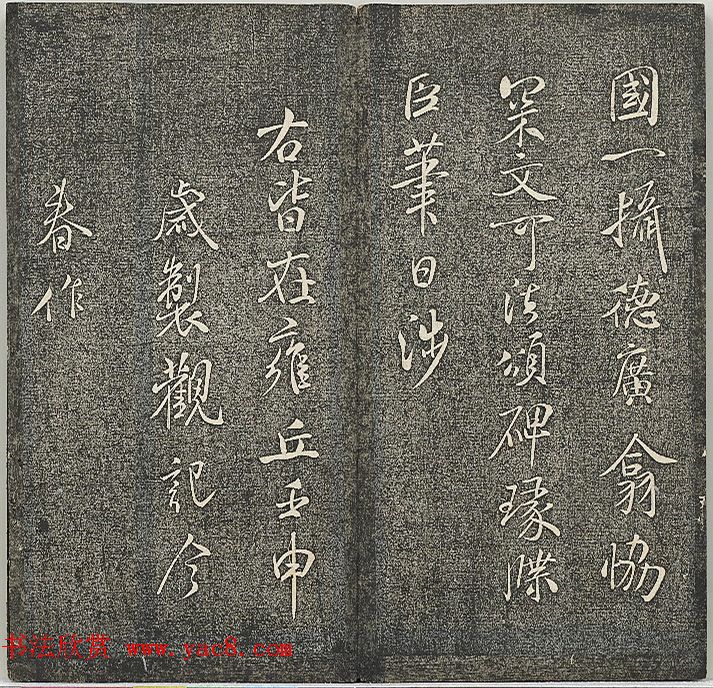 國一攝德廣翕協
梁文可法頌碑瑑牒
臣筆日涉
右皆在雍丘壬申
歲製觀記今
春作
书法欣赏 www.yac8.com